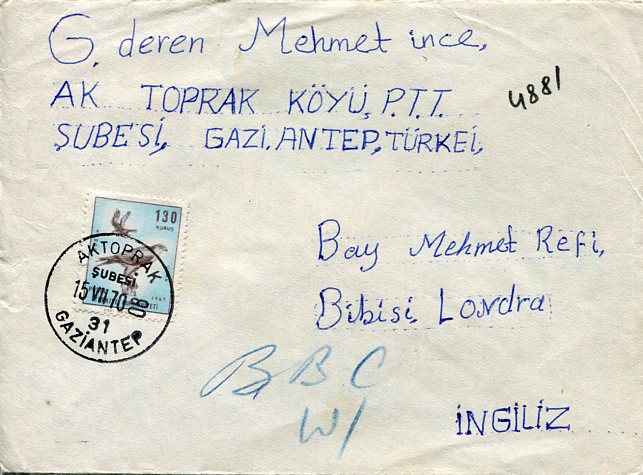 G. deren Mehmet ince,
AK TOPRAK KÖYÜ, P.T.T.
ŞUBESİ, GAZİ.ANTEP, TÜRKEİ,
4881
130
KURUŞ
1967
AKTOPRAK
ŞUBESİ
15 VII 70-80
31
GAZİANTEP
Bay Mehmet Refi,
Bibisi Londra
BBC
W1
İNGİLİZ